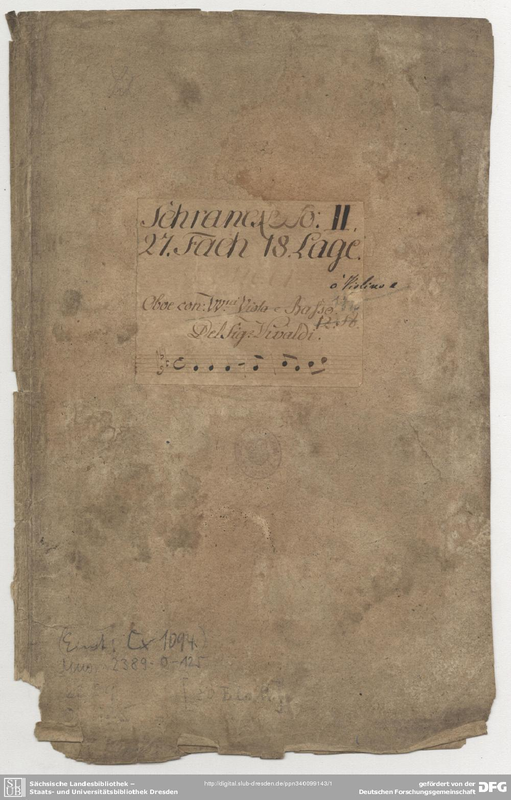 Schranck No: II.
27. Fach 18. Lage.
ò Violino
Oboe con: VV.ni Viola e Basso
Del Sig: Vivaldi.
Cx 1094)
Mus. 2389-O-125
SLUB
Sächsische Landesbibliothek –
Staats- und Universitätsbibliothek Dresden
http://digital.slub-dresden.de/ppn340099143/1
gefördert von der
Deutschen Forschungsgemeinschaft
DFG